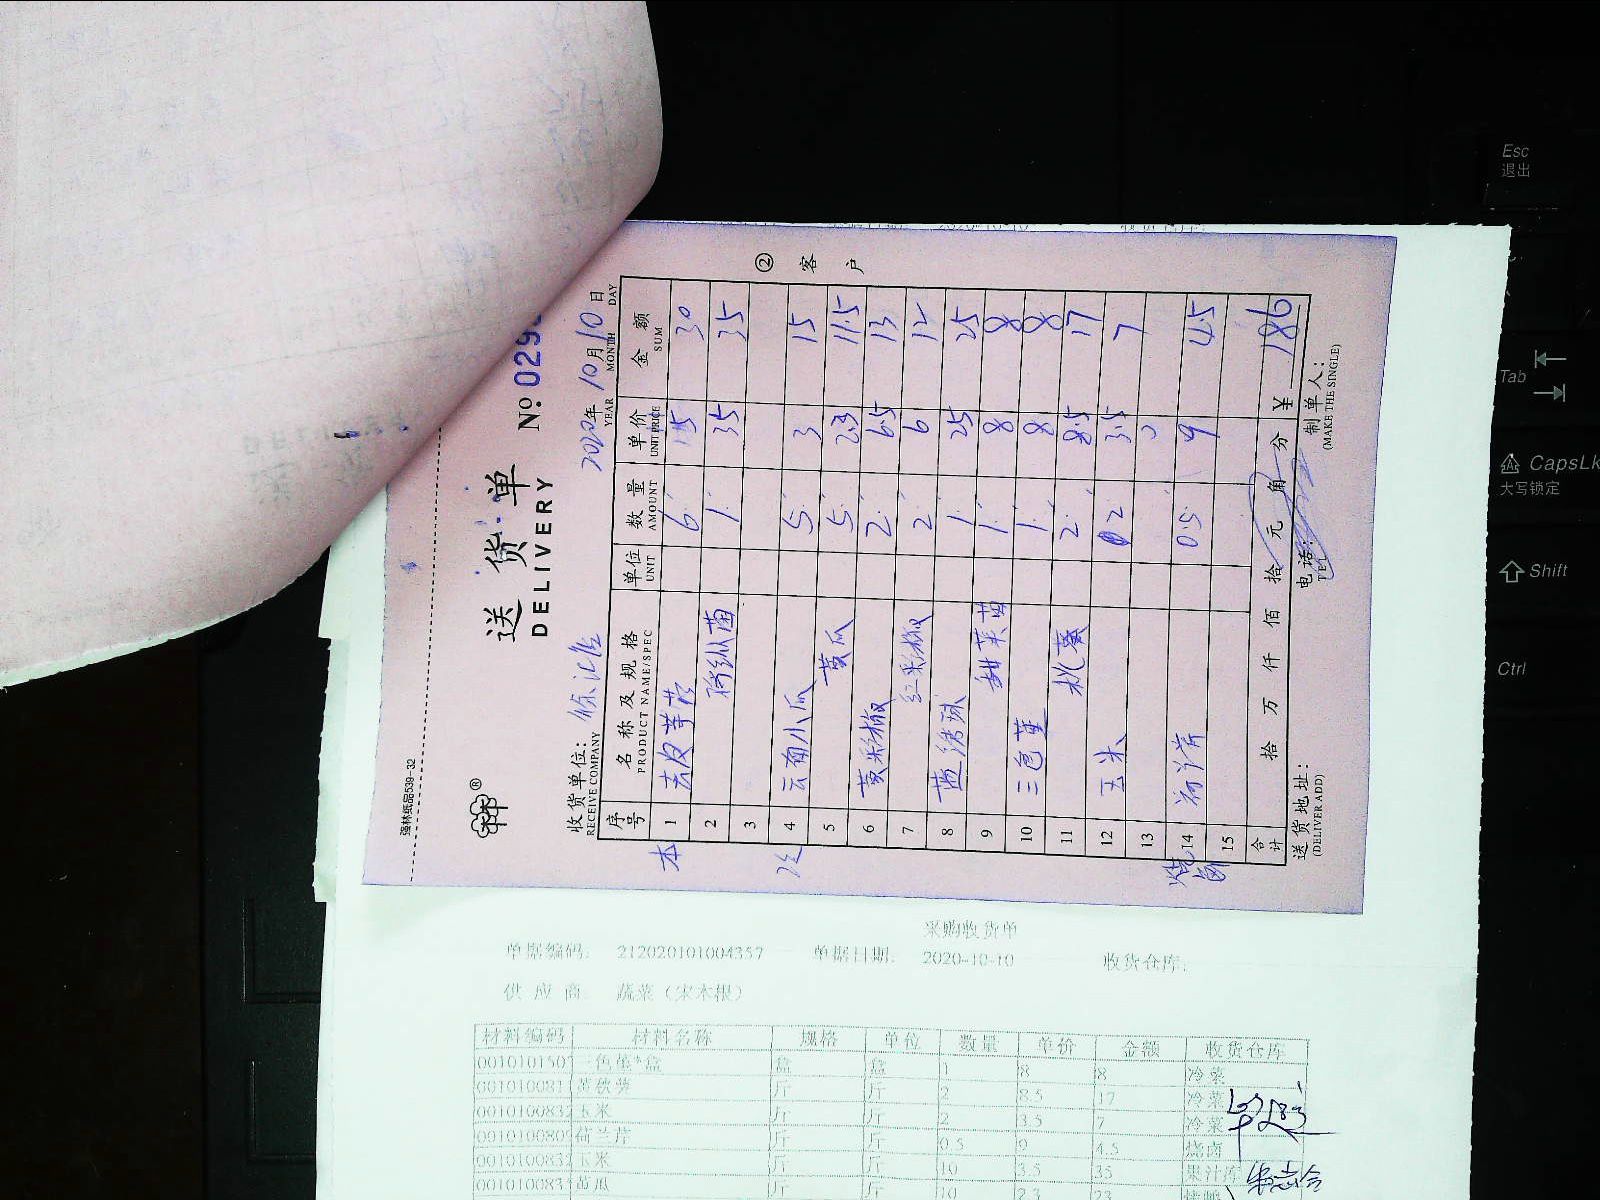 强林纸品539-32
送 货 单
DELIVERY
№ 029
收货单位：
RECEIVE COMPANY
2020年 10月 10日
YEAR MONTH DAY
序号 名 称 及 规 格 单位 数 量 单 价 金 额
PRODUCT NAME/SPEC UNIT AMOUNT UNIT PRICE SUM
1 去皮芋艿 6 5 30
2 鸡枞菌 1 35 35
3
4 云南小瓜 5 3 15
5 黄瓜 5 2.3 11.5
6 黄彩椒 2 6.5 13
7 红彩椒 2 6 12
8 1 25 25
9 甜菜苗 1 8 8
10 三色堇 1 8 8
11 秋葵 2 8.5 17
12 玉米 2 3.5 7
13
烧卤 14 荷兰芹 0.5 9 4.5
15
合计 拾 万 仟 佰 拾 元 角 分 ¥ 186
送货地址：
(DELIVER ADD)
电话：
TEL
制单人：
(MAKE THE SINGLE)
② 客 户
采购收货单
单据编码： 212020101004357 单据日期： 2020-10-10 收货仓库：
供 应 商： 蔬菜（宋木根）
材料编码 材料名称 规格 单位 数量 单价 金额 收货仓库
0010101507 三色堇*盒 盒 盒 1 8 8 冷菜
001010081 黄秋葵 斤 斤 2 8.5 17 冷菜
001010083 玉米 斤 斤 2 3.5 7 冷菜
001010080 荷兰芹 斤 斤 0.5 9 4.5 烧卤
001010083 玉米 斤 斤 10 3.5 35 果汁库
001010083 黄瓜 斤 斤 10 2.3 23
Esc
退出
Tab
CapsLk
大写锁定
Shift
Ctrl